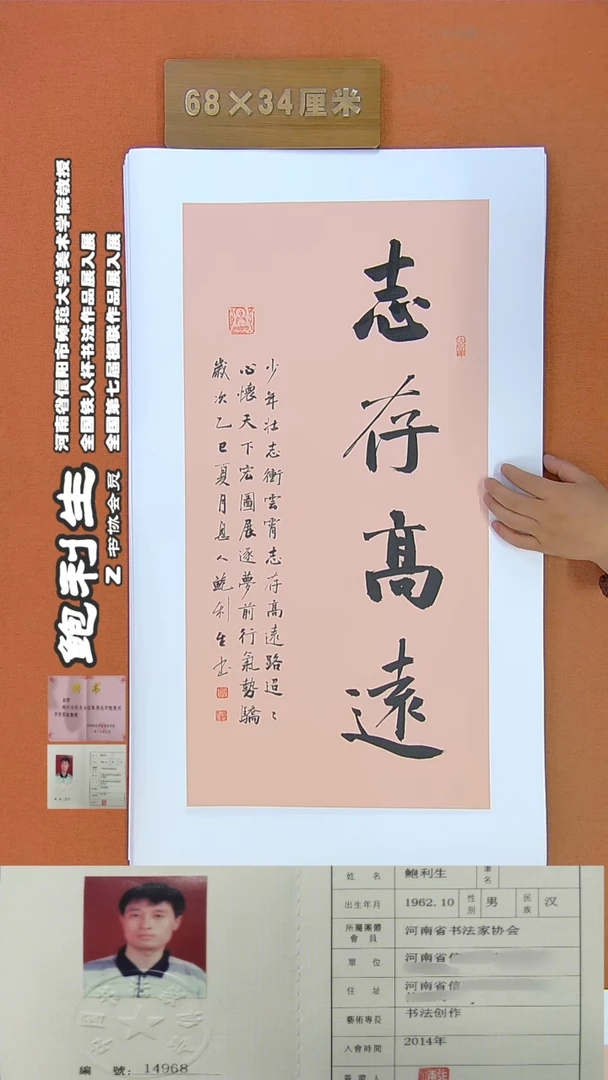 68×34厘米
河南省信阳市师范大学美术学院教授
全国铁人杯书法作品展入展
全国第七届楹联作品展入展
鲍利生
Z 书协会员
志存高遠
少年壮志衝雲霄志存高遠路迢〻
心懷天下宏圖展逐夢前行氣勢驕
歲次乙巳夏月息人鲍利生书
姓 名 鲍利生
筆名
出生年月 1962.10 性别 男 民族 汉
所屬團體會員 河南省书法家协会
單 位 河南省信
住 址 河南省信
藝術專長 书法创作
入會時間 2014年
簽證人
編 號: 14968